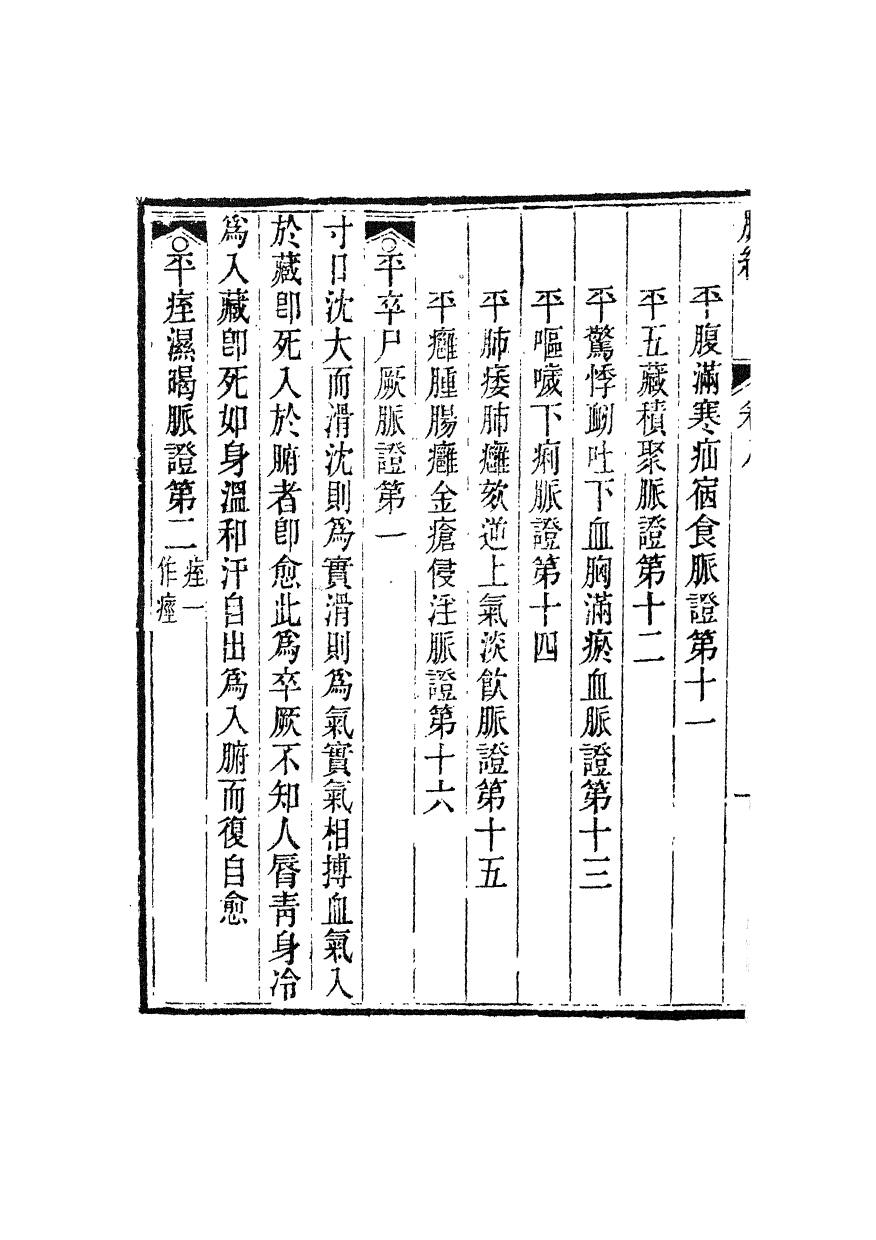 脈經
卷八
平腹滿寒疝宿食脈證第十一
平五藏積聚脈證第十二
平驚悸衂吐下血胸滿瘀血脈證第十三
平嘔噦下痢脈證第十四
平肺痿肺癰欬逆上氣淡飲脈證第十五
平癰腫腸癰金瘡侵淫脈證第十六
○平卒尸厥脈證第一
寸口沈大而滑沈則爲實滑則爲氣實氣相搏血氣入
於藏卽死入於腑者卽愈此爲卒厥不知人脣靑身冷
爲入藏卽死如身溫和汗自出爲入腑而復自愈
○平痓濕暍脈證第二痓一作痙